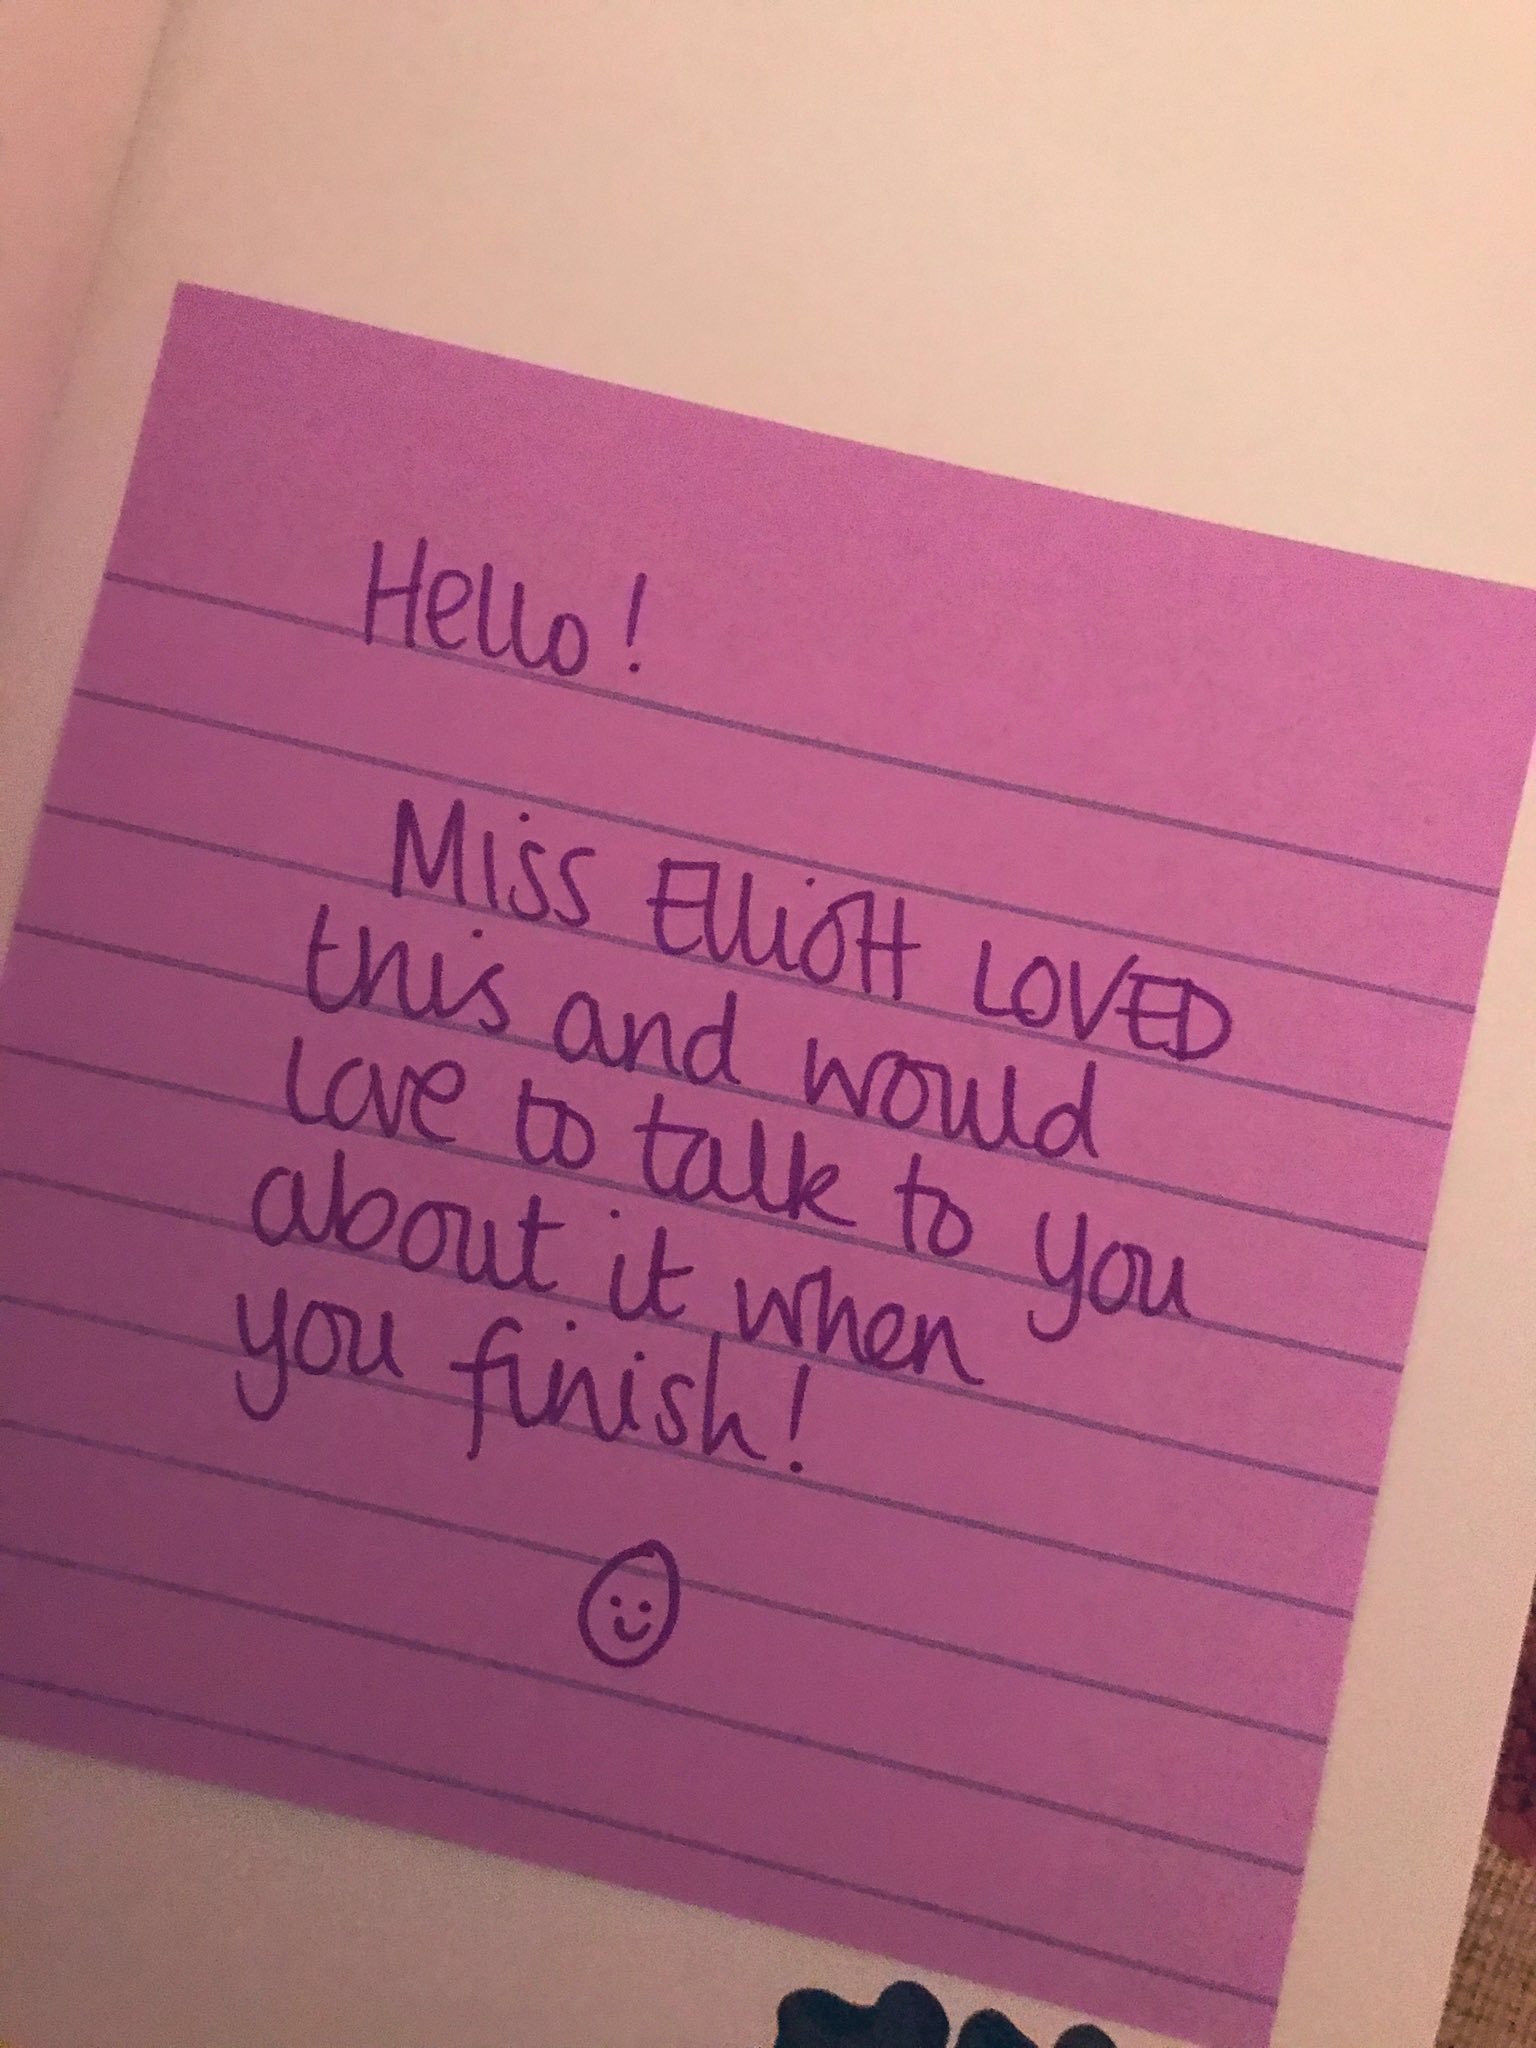 Hello!
Miss Elliott LOVED
this and would
love to talk to you
about it when
you finish!